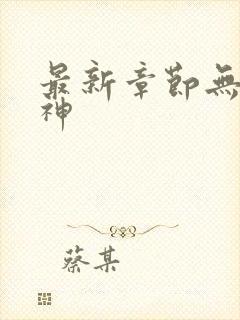 最新章節無
神
蔡某